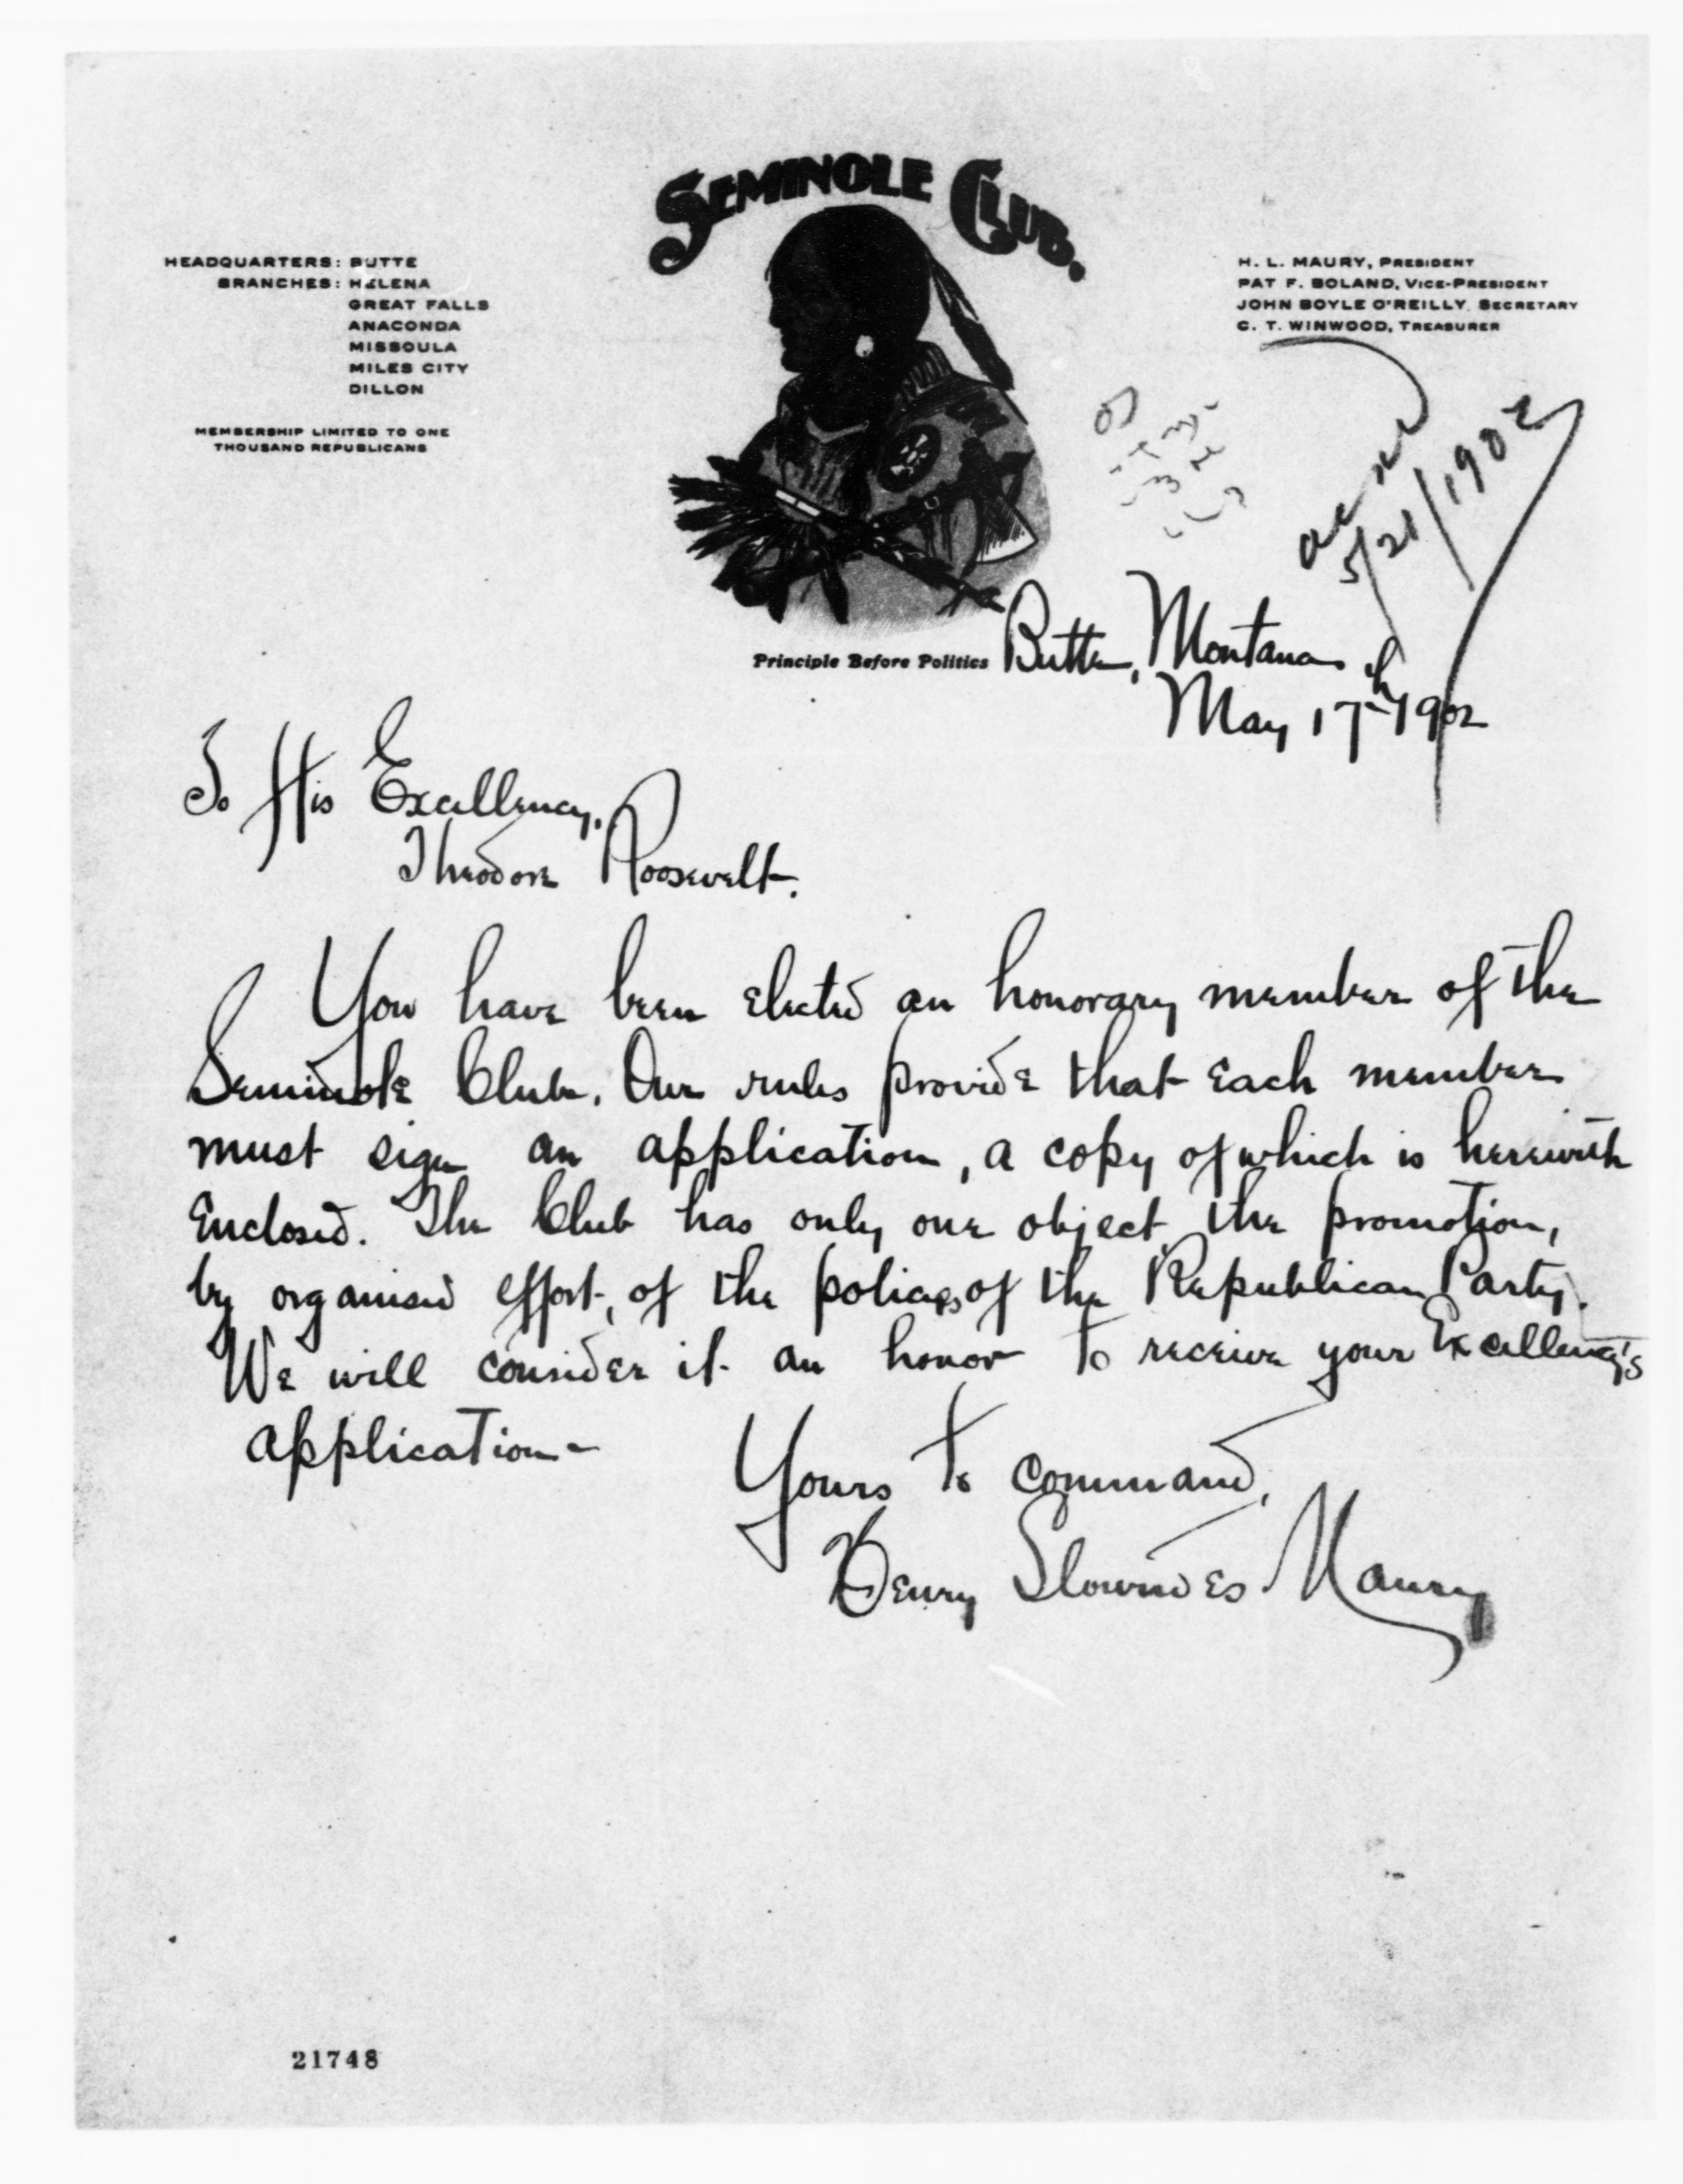 SEMINOLE CLUB.
HEADQUARTERS: BUTTE
BRANCHES: HELENA
GREAT FALLS
ANACONDA
MISSOULA
MILES CITY
DILLON
MEMBERSHIP LIMITED TO ONE
THOUSAND REPUBLICANS
H. L. MAURY, PRESIDENT
PAT F. BOLAND, VICE-PRESIDENT
JOHN BOYLE O'REILLY, SECRETARY
C. T. WINWOOD, TREASURER
5/21/1902
Principle Before Politics
Butte, Montana
May 17th 1902
To His Excellency,
Theodore Roosevelt.
You have been elected an honorary member of the
Seminole Club. Our rules provide that each member
must sign an application, a copy of which is herewith
enclosed. The Club has only one object, the promotion,
by organised effort, of the policies of the Republican Party.
We will consider it an honor to receive your Excellency's
application-
Yours to command,
Henry Lowndes Maury
21748